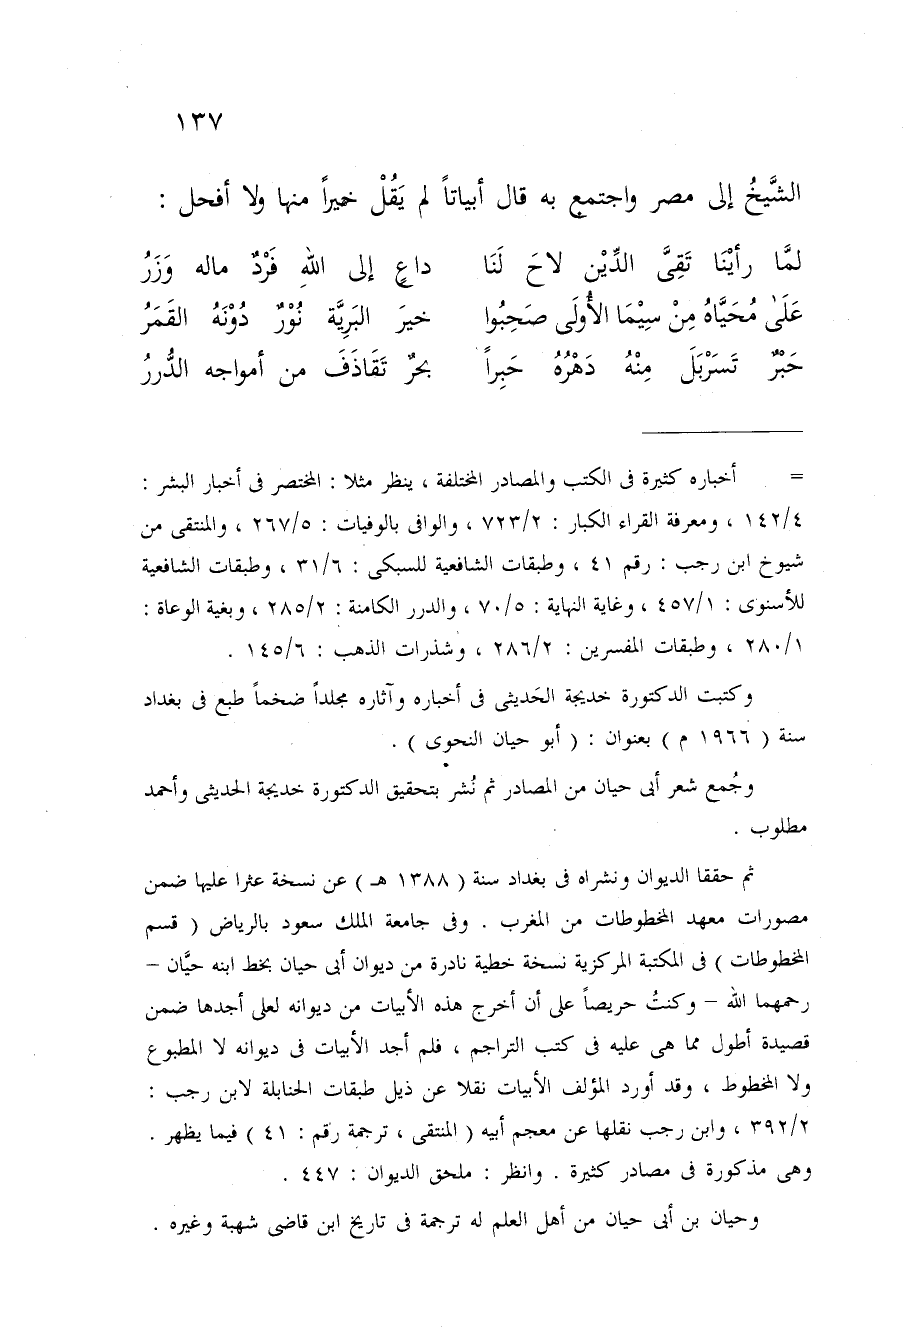 ١٣٧
الشَّيخُ إلى مصر واجتمع به قال أبياتاً لم يَقُلْ خيراً منها ولا أفحل :
لمَّا رأيْنَا تَقِىَّ الدِّيْنِ لاحَ لَنَا داعٍ إلى اللهِ فَرْدٌ ماله وَزَرُ
عَلَىٰ مُحَيَّاهُ مِنْ سِيْمَا الأُولَى صَحِبُوا خيرَ البَرِيَّة نُوْرٌ دُوْنَهُ القَمَرُ
حَبْرٌ تَسَرْبَلَ مِنْهُ دَهْرُهُ حَبِراً بحرٌ تَقَاذَفَ من أمواجه الدُّررُ
= أخباره كثيرة فى الكتب والمصادر المختلفة ، ينظر مثلا : المختصر فى أخبار البشر :
١٤٢/٤ ، ومعرفة القراء الكبار : ٧٢٣/٢ ، والوافى بالوفيات : ٢٦٧/٥ ، والمنتقى من
شيوخ ابن رجب : رقم ٤١ ، وطبقات الشافعية للسبكى : ٣١/٦ ، وطبقات الشافعية
للأسنوى : ٤٥٧/١ ، وغاية النهاية : ٧٠/٥ ، والدرر الكامنة : ٢٨٥/٢ ، وبغية الوعاة :
٢٨٠/١ ، وطبقات المفسرين : ٢٨٦/٢ ، وشذرات الذهب : ١٤٥/٦ .
وكتبت الدكتورة خديجة الحَديثى فى أخباره وآثاره مجلداً ضخماً طبع فى بغداد
سنة ( ١٩٦٦ م ) بعنوان : ( أبو حيان النحوى ) .
وجُمع شعر أبى حيان من المصادر ثم نُشر بتحقيق الدكتورة خديجة الحديثى وأحمد
مطلوب .
ثم حققا الديوان ونشراه فى بغداد سنة ( ١٣٨٨ هـ ) عن نسخة عثرا عليها ضمن
مصورات معهد المخطوطات من المغرب . وفى جامعة الملك سعود بالرياض ( قسم
المخطوطات ) فى المكتبة المركزية نسخة خطية نادرة من ديوان أبى حيان بخط ابنه حيَّان –
رحمهما الله – وكنتُ حريصاً على أن أخرج هذه الأبيات من ديوانه لعلى أجدها ضمن
قصيدة أطول مما هى عليه فى كتب التراجم ، فلم أجد الأبيات فى ديوانه لا المطبوع
ولا المخطوط ، وقد أورد المؤلف الأبيات نقلا عن ذيل طبقات الحنابلة لابن رجب :
٣٩٢/٢ ، وابن رجب نقلها عن معجم أبيه ( المنتقى ، ترجمة رقم : ٤١ ) فيما يظهر .
وهى مذكورة فى مصادر كثيرة . وانظر : ملحق الديوان : ٤٤٧ .
وحيان بن أبى حيان من أهل العلم له ترجمة فى تاريخ ابن قاضى شهبة وغيره .